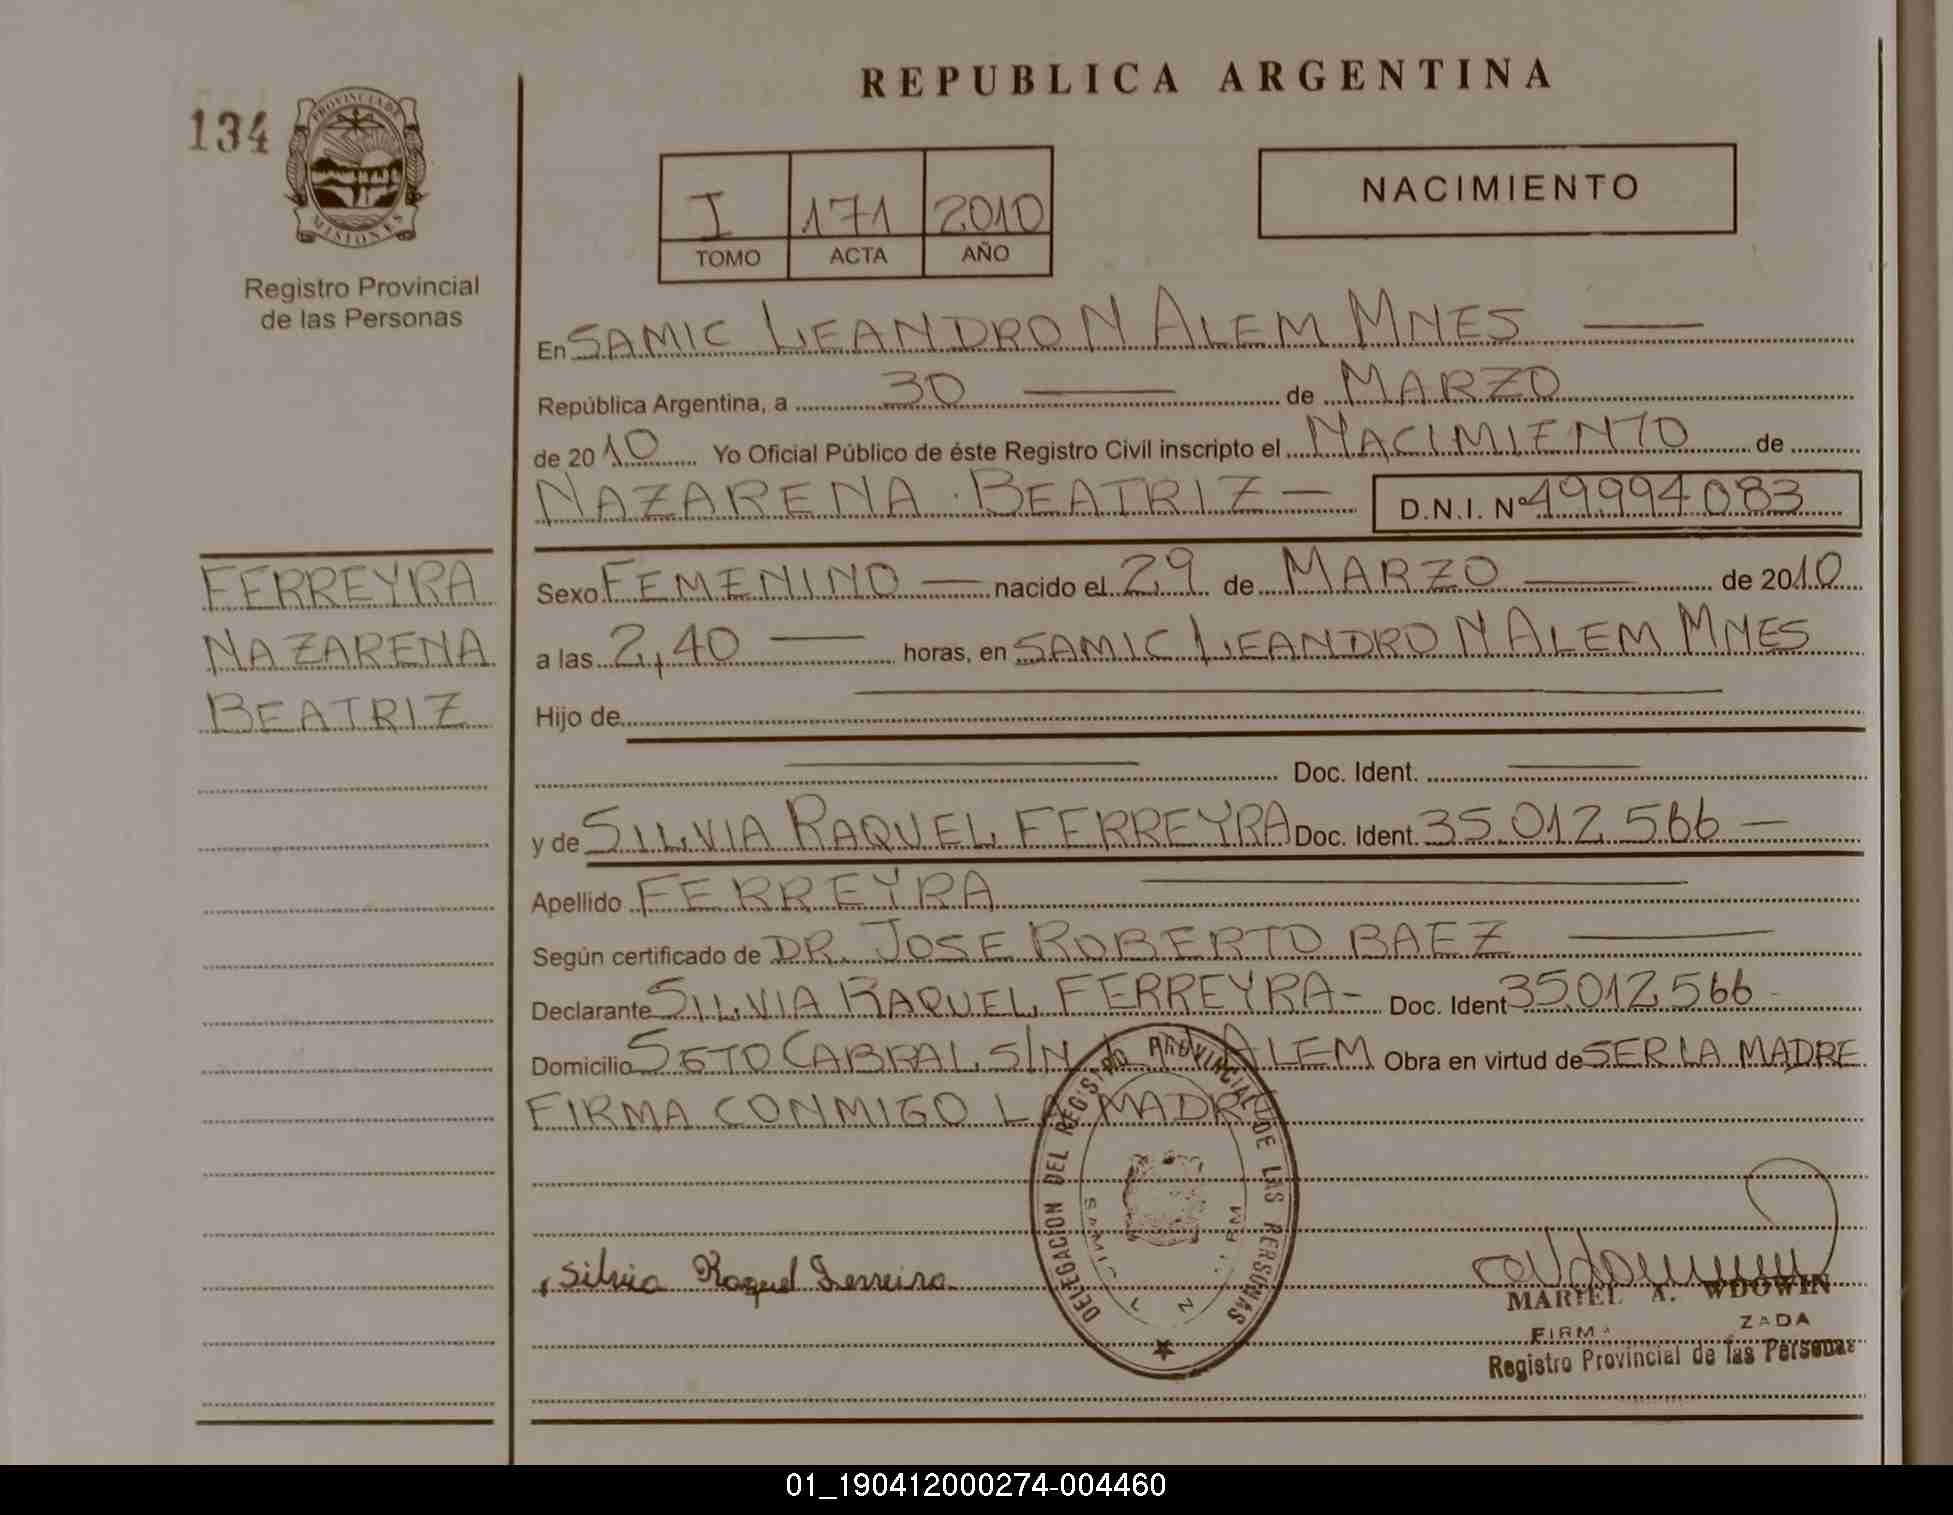 REPUBLICA ARGENTINA
134
PROVINCIA DE
MISIONES
Registro Provincial
de las Personas
I 171 2010
TOMO ACTA AÑO
NACIMIENTO
En SAMIC LEANDRO N ALEM MNES
República Argentina, a 30 de MARZO
de 2010 Yo Oficial Público de éste Registro Civil inscripto el NACIMIENTO de
NAZARENA BEATRIZ D.N.I. Nº 49994083
FERREYRA
NAZARENA
BEATRIZ
Sexo FEMENINO nacido el 29 de MARZO de 2010
a las 2,40 horas, en SAMIC LEANDRO N ALEM MNES
Hijo de
Doc. Ident.
y de SILVIA RAQUEL FERREYRA Doc. Ident. 35.012.566
Apellido FERREYRA
Según certificado de DR. JOSE ROBERTO BAEZ
Declarante SILVIA RAQUEL FERREYRA- Doc. Ident 35.012.566
Domicilio SGTO CABRAL S/N L N ALEM Obra en virtud de SER LA MADRE
FIRMA CONMIGO LA MADRE
DELEGACION DEL REGISTRO PROVINCIAL DE LAS PERSONAS
SAMIC
Silvia Raquel Ferreira
MARIEL A. WDOWIN
Registro Provincial de las Personas
01_190412000274-004460